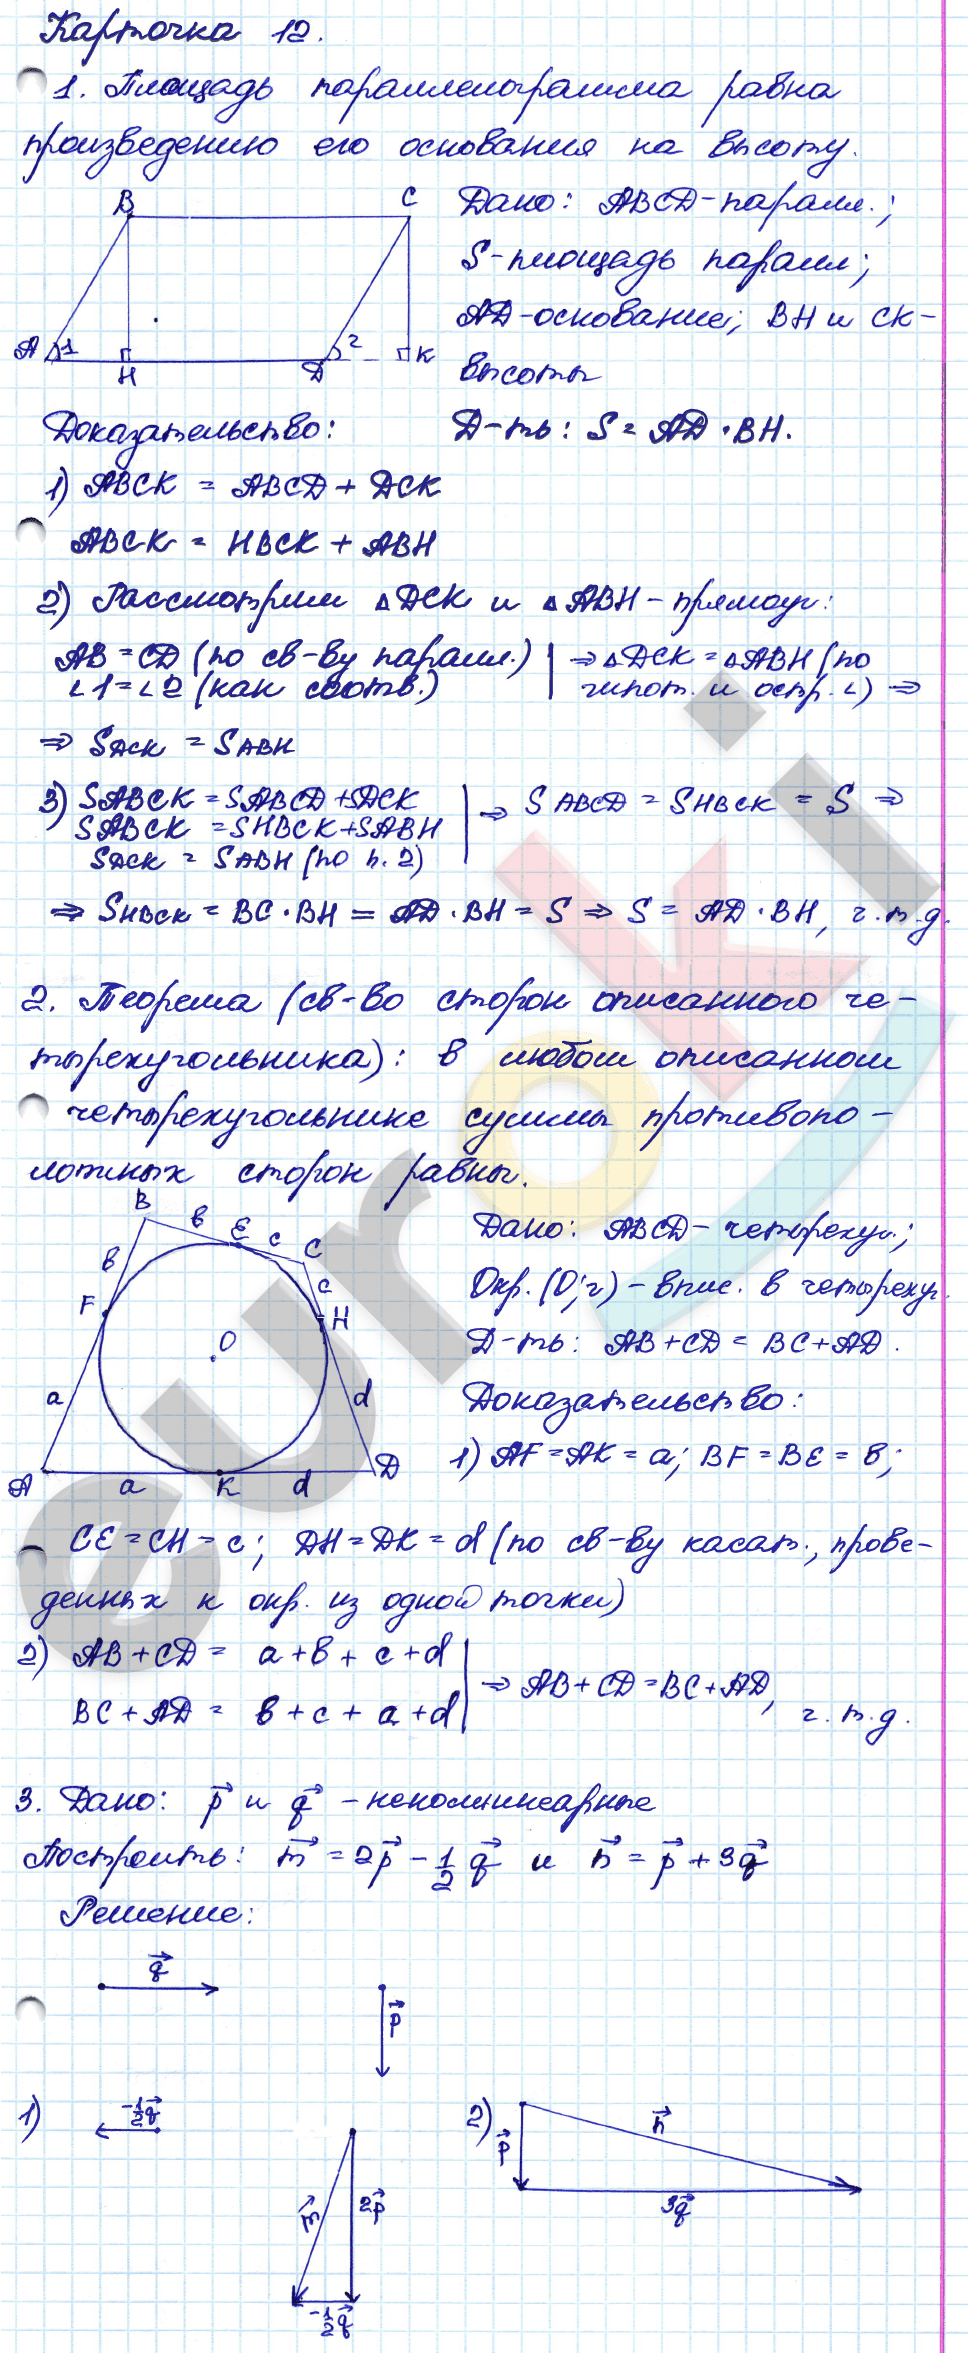 Карточка 12.
1. Площадь параллелограмма равна
произведению его основания на высоту.
B C
A 1 H D 2 K
Дано: ABCD-паралл.;
S-площадь паралл;
AD-основание; BH и CK-
высоты
Доказательство: Д-ть: S = AD · BH.
1) ABCK = ABCD + DCK
ABCK = HBCK + ABH
2) Рассмотрим △DCK и △ABH - прямоуг:
AB = CD (по св-ву паралл.) | ⇒ △DCK = △ABH (по
∠1 = ∠2 (как соотв.) | гипот. и остр. ∠) ⇒
⇒ SDCK = SABH
3) SABCK = SABCD + SDCK
SABCK = SHBCK + SABH | ⇒ SABCD = SHBCK = S ⇒
SDCK = SABH (по п. 2)
⇒ SHBCK = BC · BH = AD · BH = S ⇒ S = AD · BH, ч.т.д.
2. Теорема (св-во сторон описанного че-
тырехугольника): в любом описанном
четырехугольнике суммы противопо-
ложных сторон равны.
B в E c C
в c
F H
O
a d
A a K d D
Дано: ABCD - четырехуг.;
Окр. (O; r) - впис. в четырехуг.
Д-ть: AB + CD = BC + AD.
Доказательство:
1) AF = AK = a; BF = BE = в;
CE = CH = c; DH = DK = d (по св-ву касат., прове-
денных к окр. из одной точки)
2) AB + CD = a + в + c + d
BC + AD = в + c + a + d | ⇒ AB + CD = BC + AD, ч.т.д.
3. Дано: p⃗ и q⃗ - неколлинеарные
Построить: m⃗ = 2p⃗ - 1/2 q⃗ и n⃗ = p⃗ + 3q⃗
Решение:
q⃗
p⃗
1) -1/2 q⃗
m⃗ 2p⃗
-1/2 q⃗
2) p⃗ n⃗
3q⃗
euroki